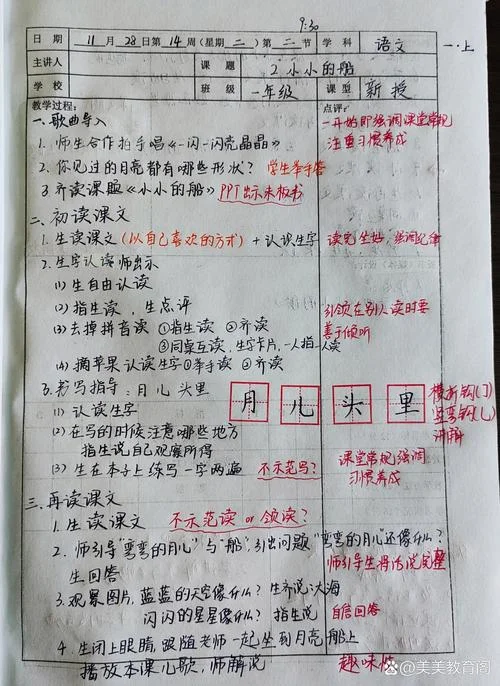 9:30
日期 11月28日第14周(星期二)第二节 学科 语文 一·上
主讲人 课题 2 小小的船
学校 班级 一年级 课型 新授
教学过程: 点评:
一、歌曲导入 一开始即强调课堂常规
1. 师生合作拍手唱《一闪一闪亮晶晶》 注重习惯养成
2. 你见过的月亮都有哪些形状? 学生举手答
3. 齐读课题《小小的船》 PPT出示未板书
二、初读课文
1. 生读课文(以自己喜欢的方式)+认识生字 读完坐好,强调纪律
2. 生字认读 师出示
(1) 生自由认读
(2) 指生读,生点评 引领在别人读时要
(3) 去掉拼音读 ①指生读 ②齐读 善于倾听
③同桌互读,生字卡片,一人指一人读
(4) 摘苹果认读生字 ①举手读 ②齐读
3. 书写指导:月儿头里
(1) 认读生字 月 儿 头 里 横折钩(㇆)
(2) 在写的时候注意哪些地方 竖弯钩(乚)
指生说自己观察所得 讲解
(3) 生在本子上练写一字两遍 不示范写? 课堂常规强调
习惯养成
三、再读课文
1. 生读课文 不示范读 or 领读?
2. 师引导"弯弯的月儿"与"船",引出问题"弯弯的月儿"还像什么?
生回答 师引导生将话说完整
3. 观察图片,蓝蓝的天空像什么?生齐说大海
闪闪的星星像什么? 指生说 自信回答
4. 生闭上眼睛,跟随老师一起坐到月亮船上
播放本课儿歌,师解说 趣味性
美美教育阁